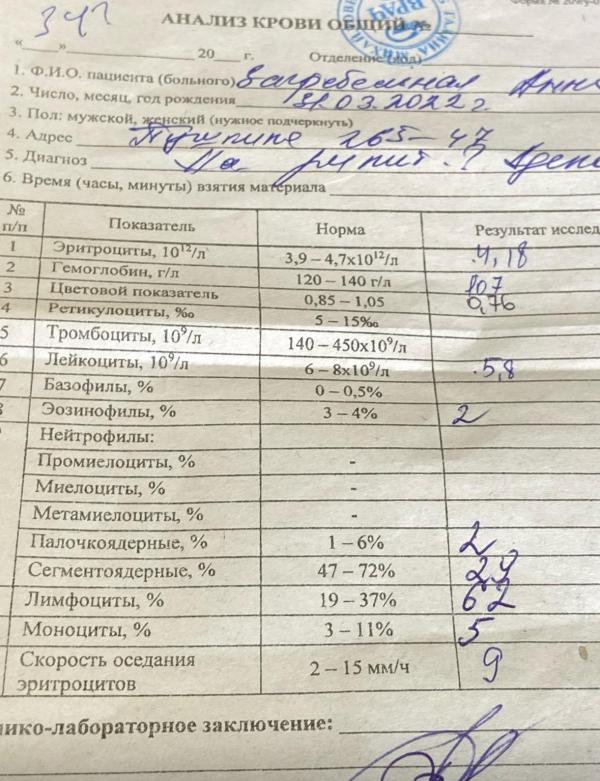 АНАЛИЗ КРОВИ ОБЩИЙ №
ВРАЧ
«____» ____ 20___ г. Отделение (код)
1. Ф.И.О. пациента (больного) Загребельная Анн
2. Число, месяц, год рождения 31.03.2022 г.
3. Пол: мужской, женский (нужное подчеркнуть)
4. Адрес 265-47
5. Диагноз
6. Время (часы, минуты) взятия материала
№ п/п Показатель Норма Результат исслед
1 Эритроциты, 10¹²/л 3,9 – 4,7х10¹²/л 4,18
2 Гемоглобин, г/л 120 – 140 г/л 107
3 Цветовой показатель 0,85 – 1,05 0,76
4 Ретикулоциты, ‰ 5 – 15‰
5 Тромбоциты, 10⁹/л 140 – 450х10⁹/л
6 Лейкоциты, 10⁹/л 6 – 8х10⁹/л 5,8
7 Базофилы, % 0 – 0,5%
8 Эозинофилы, % 3 – 4% 2
Нейтрофилы:
Промиелоциты, % -
Миелоциты, % -
Метамиелоциты, % -
Палочкоядерные, % 1 – 6% 2
Сегментоядерные, % 47 – 72% 29
Лимфоциты, % 19 – 37% 62
Моноциты, % 3 – 11% 5
Скорость оседания эритроцитов 2 – 15 мм/ч 9
нико-лабораторное заключение: